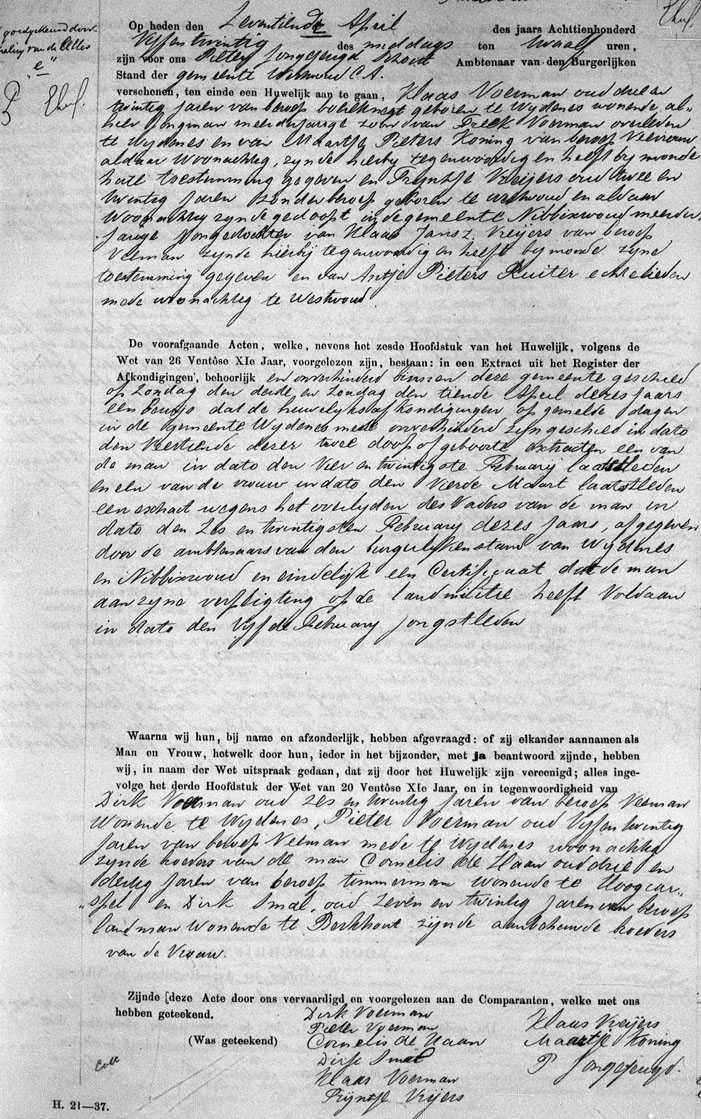 goedgekeurd door
Op heden den Zeventiende April des jaars Achttienhonderd
Vijfentwintig des middags ten twaalf uren,
zijn voor ons Pieter Jongejeugd Ambtenaar van den Burgerlijken
Stand der gemeente
verschenen, ten einde een Huwelijk aan te gaan, Klaas Voerman oud drie en
twintig jaren van beroep geboren te Wijdenes wonende al-
hier Jongman meerderjarige zoon van Voerman overleden
te Wijdenes en van Maartje Pieters Koning van beroep Veevrouw
aldaar Woonachtig, zynde hierby tegenwoordig en heeft by monde
hare toestemming gegeven en Tryntje Vreijers oud twee en
twintig jaren zonder beroep geboren te Westwoud en aldaar
Woonachtig zynde gedoopt in de gemeente Nibbixwoud meerder-
jarige Jongedochter van Klaas Jansz Vreijers van beroep
Veeman zynde hierbij tegenwoordig en heeft by monde zyne
toestemming gegeven en van Antje Pieters Ruiter echtelieden
mede woonachtig te Westwoud
De voorafgaande Acten, welke, nevens het zesde Hoofdstuk van het Huwelijk, volgens de
Wet van 26 Ventôse XIe Jaar, voorgelezen zijn, bestaan: in een Extract uit het Register der
Afkondigingen, behoorlijk en onverhinderd binnen deze gemeente geschied
op Zondag den derde, en Zondag den tiende April dezes jaars
een bewijs dat de huwelyksafkondigingen op gemelde dagen
in de Gemeente Wydenes mede onverhinderd zyn geschied in dato
den Veertiende dezer twee doop of geboorte extracten een van
de man in dato den Vier en twintigste February laatstleden
en een van de vrouw in dato den Vierde Maart laatstleden
een extract wegens het overlyden des Vaders van de man in
dato den Zes en twintigsten February dezes jaars, afgegeven
door de ambtenaars van den burgerlyken stand van Wydenes
en Nibbixwoud en eindelijk een Certificaat dat de man
aan zyne verpligting op de landmilitie heeft Voldaan
in dato den Vyfde February jongstleden
Waarna wij hun, bij name en afzonderlijk, hebben afgevraagd: of zij elkander aannamen als
Man en Vrouw, hetwelk door hun, ieder in het bijzonder, met ja beantwoord zijnde, hebben
wij, in naam der Wet uitspraak gedaan, dat zij door het Huwelijk zijn vereenigd; alles inge-
volge het derde Hoofdstuk der Wet van 20 Ventôse XIe Jaar, en in tegenwoordigheid van
Dirk Voerman oud zes en twintig jaren van beroep Veeman
Wonende te Wydenes, Pieter Voerman oud Vyfentwintig
jaren van beroep Veeman mede te Wydenes woonachtig
zynde broeders van de man Cornelis de Haan oud drie en
dertig jaren van beroep timmerman wonende te Hoogcar-
"spel en Dirk Smal, oud zeven en twintig jaren van beroep
landman wonende te Berkhout zijnde aanbehuwde broeders
van de Vrouw.
Zijnde [deze Acte door ons vervaardigd en voorgelezen aan de Comparanten, welke met ons
hebben geteekend. Dirk Voerman
Pieter Voerman Klaas Vreijers
(Was geteekend) Cornelis de Haan Maartje Koning
Dirk Smal P Jongejeugd.
Klaas Voerman
Tryntje Vreijers
H. 21—37.